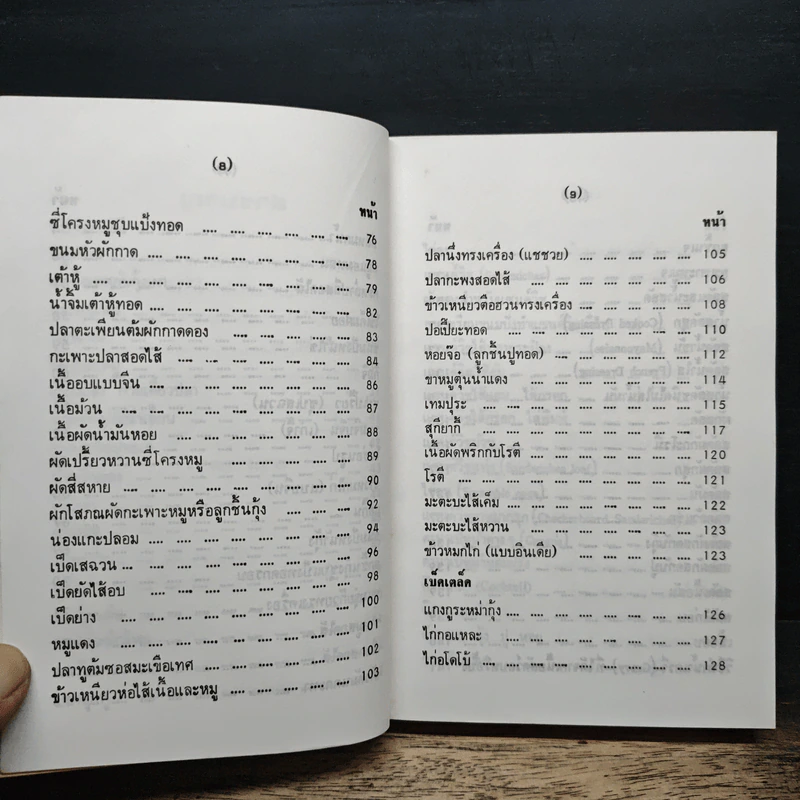 (๘)
หน้า
ซี่โครงหมูชุบแป้งทอด .... .... .... .... .... .... 76
ขนมหัวผักกาด .... .... .... .... .... .... .... 78
เต้าหู้ .... .... .... .... .... .... .... .... 79
น้ำจิ้มเต้าหู้ทอด .... .... .... .... .... .... .... 82
ปลาตะเพียนต้มผักกาดดอง .... .... .... .... .... 83
กะเพาะปลาสอดไส้ .... .... .... .... .... .... 84
เนื้ออบแบบจีน .... .... .... .... .... .... .... 86
เนื้อม้วน .... .... .... .... .... .... .... 87
เนื้อผัดน้ำมันหอย .... .... .... .... .... .... 88
ผัดเปรี้ยวหวานซี่โครงหมู .... .... .... .... .... 89
ผัดสี่สหาย .... .... .... .... .... .... .... 90
ผักโสภณผัดกะเพาะหมูหรือลูกชิ้นกุ้ง .... .... .... .... 92
น่องแกะปลอม .... .... .... .... .... .... 94
เป็ดเสฉวน .... .... .... .... .... .... .... 96
เป็ดยัดไส้อบ .... .... .... .... .... .... 98
เป็ดย่าง .... .... .... .... .... .... .... 100
หมูแดง .... .... .... .... .... .... .... 101
ปลาทูต้มซอสมะเขือเทศ .... .... .... .... .... 102
ข้าวเหนียวห่อไส้เนื้อและหมู .... .... .... .... .... 103
(๑)
หน้า
ปลานึ่งทรงเครื่อง (แชชวย) .... .... .... .... .... 105
ปลากะพงสอดไส้ .... .... .... .... .... .... 106
ข้าวเหนียวตือฮวนทรงเครื่อง .... .... .... .... 108
ปอเปี๊ยะทอด .... .... .... .... .... .... .... 110
หอยจ๊อ (ลูกชิ้นปูทอด) .... .... .... .... .... 112
ขาหมูตุ๋นน้ำแดง .... .... .... .... .... .... 114
เทมปุระ .... .... .... .... .... .... .... 115
สุกียากี้ .... .... .... .... .... .... .... 117
เนื้อผัดพริกกับโรตี .... .... .... .... .... .... 120
โรตี .... .... .... .... .... .... .... .... 121
มะตะบะไส้เค็ม .... .... .... .... .... .... 122
มะตะบะไส้หวาน .... .... .... .... .... .... 123
ข้าวหมกไก่ (แบบอินเดีย) .... .... .... .... .... 123
เบ็ดเตล็ด
แกงกูระหม่ากุ้ง .... .... .... .... .... .... .... 126
ไก่กอแหละ .... .... .... .... .... .... .... 127
ไก่อโดโบ้ .... .... .... .... .... .... .... 128